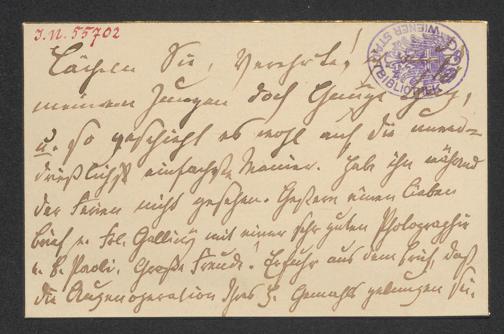 J.N. 55702
WIENER STADTBIBLIOTHEK
Lächeln Sie, Verehrte!
meinem Jungen doch Genüge
u. so geschieht es wohl auf die
einfachste Manier. Hab ihn während
der Ferien nicht gesehen. Gestern einen lieben
Brief v. Frl. mit einer sehr guten Photographie
v. B. Paoli. Große Freude. Erfuhr aus dem Brief, daß
die Augenoperation Ihres H. Gemahls gelungen sei.